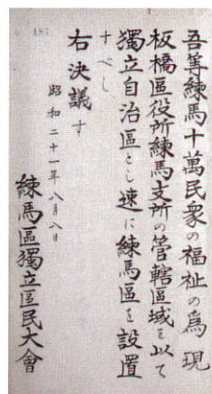 187
吾等練馬十萬民衆の福祉の爲現
板橋區役所練馬支所の管轄區域を以て
獨立自治區とし速に練馬區を設置
すべし
右決議す
昭和二十一年八月八日
練馬區獨立區民大會